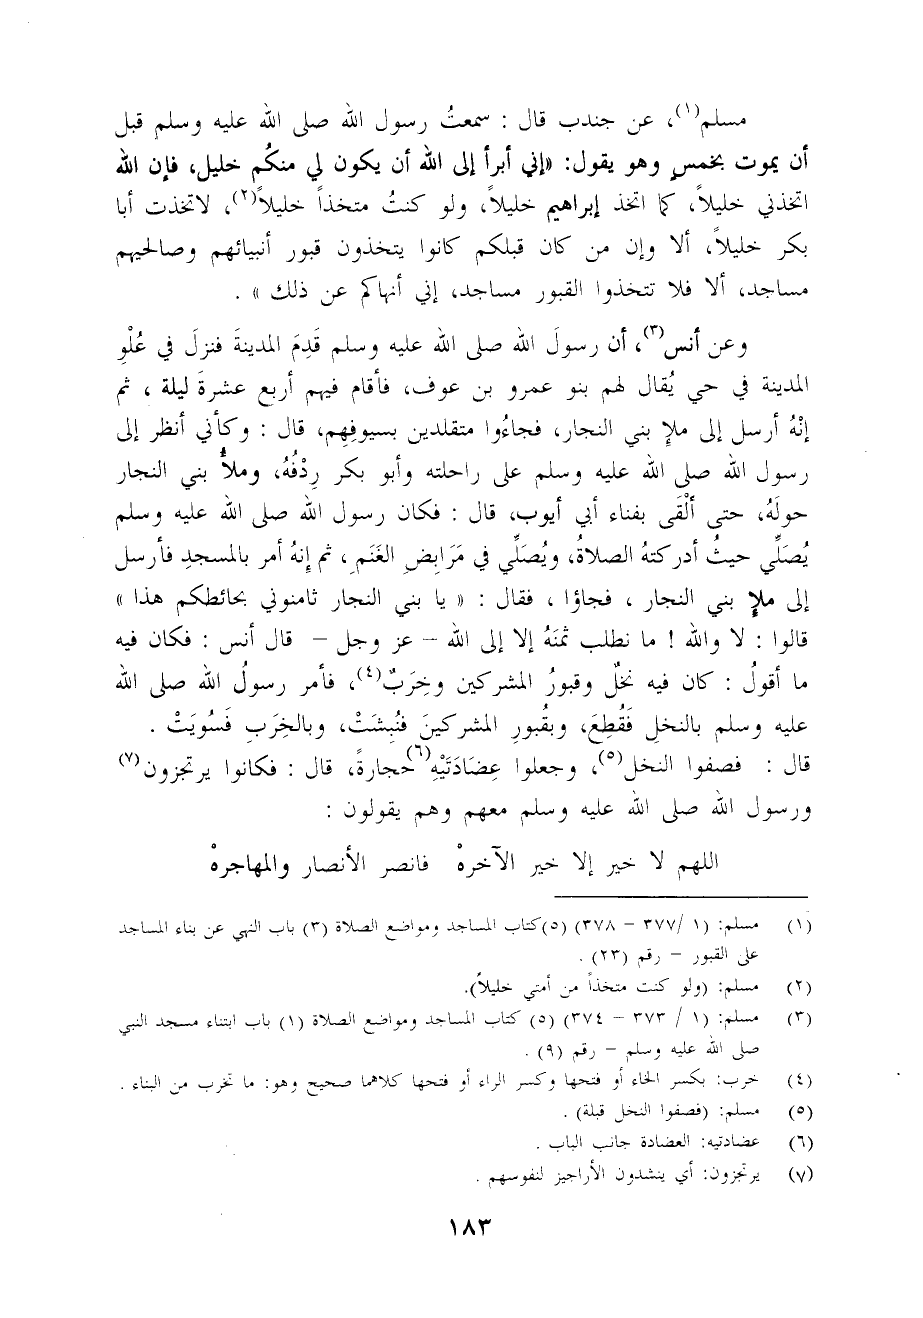 مسلم(١)، عن جندب قال : سمعتُ رسول الله صلى الله عليه وسلم قبل
أن يموت بخمسٍ وهو يقول: «إني أبرأ إلى الله أن يكون لي منكُم خليل، فإن الله
اتخذني خليلاً، كما اتخذ إبراهيم خليلاً، ولو كنتُ متخذاً خليلاً(٢)، لاتخذت أبا
بكر خليلاً، ألا وإن من كان قبلكم كانوا يتخذون قبور أنبيائهم وصالحيهم
مساجد، ألا فلا تتخذوا القبور مساجد، إني أنهاكم عن ذلك » .
وعن أنس(٣)، أن رسولَ الله صلى الله عليه وسلم قَدِمَ المدينةَ فنزلَ في عُلْوِ
المدينة في حي يُقال لهم بنو عمرو بن عوف، فأقام فيهم أربع عشرةَ ليلة ، ثم
إنْهُ أرسل إلى ملإِ بني النجار، فجاءُوا متقلدين بسيوفِهِم، قال : وكأني أنظر إلى
رسول الله صلى الله عليه وسلم على راحلته وأبو بكر رِدْفُهُ، وملأُ بني النجار
حولَهُ، حتى ألْقَى بفناء أبي أيوب، قال : فكان رسول الله صلى الله عليه وسلم
يُصَلِّي حيثُ أدركتهُ الصلاةُ، ويُصَلِّي في مَرَابِضِ الغَنَمِ، ثم إنهُ أمر بالمسجدِ فأرسل
إلى ملإِ بني النجار ، فجاؤا ، فقال : « يا بني النجار ثامنوني بحائطكم هذا »
قالوا : لا والله ! ما نطلب ثمنَهُ إلا إلى الله – عز وجل – قال أنس : فكان فيه
ما أقولُ : كان فيه نخلٌ وقبورُ المشركين وخِرَبٌ(٤)، فأمر رسولُ الله صلى الله
عليه وسلم بالنخلِ فَقُطِعَ، وبقُبورِ المشركينَ فنُبِشَتْ، وبالخِرَبِ فَسُويَتْ .
قال : فصفوا النخل(٥)، وجعلوا عِضَادَتَيْهِ(٦)حجارةً، قال : فكانوا يرتجزون(٧)
ورسول الله صلى الله عليه وسلم معهم وهم يقولون :
اللهم لا خير إلا خير الآخرهْ فانصر الأنصار والمهاجرهْ
(١) مسلم: (١ /٣٧٧ – ٣٧٨) (٥)كتاب المساجد ومواضع الصلاة (٣) باب النهي عن بناء المساجد
على القبور – رقم (٢٣) .
(٢) مسلم: (ولو كنت متخذاً من أمتي خليلاً).
(٣) مسلم: (١ / ٣٧٣ – ٣٧٤) (٥) كتاب المساجد ومواضع الصلاة (١) باب ابتناء مسجد النبي
صلى الله عليه وسلم – رقم (٩) .
(٤) خرب: بكسر الخاء أو فتحها وكسر الراء أو فتحها كلاهما صحيح وهو: ما تخرب من البناء .
(٥) مسلم: (فصفوا النخل قبلة) .
(٦) عضادتيه: العضادة جانب الباب .
(٧) يرتجزون: أي ينشدون الأراجيز لنفوسهم .
١٨٣